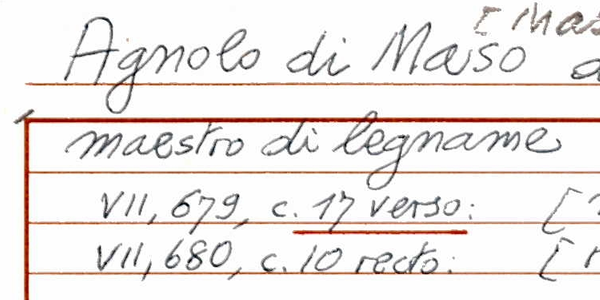 [Mas
Agnolo di Maso
maestro di legname
VII, 679, c. 17 verso: [
VII, 680, c. 10 recto: [